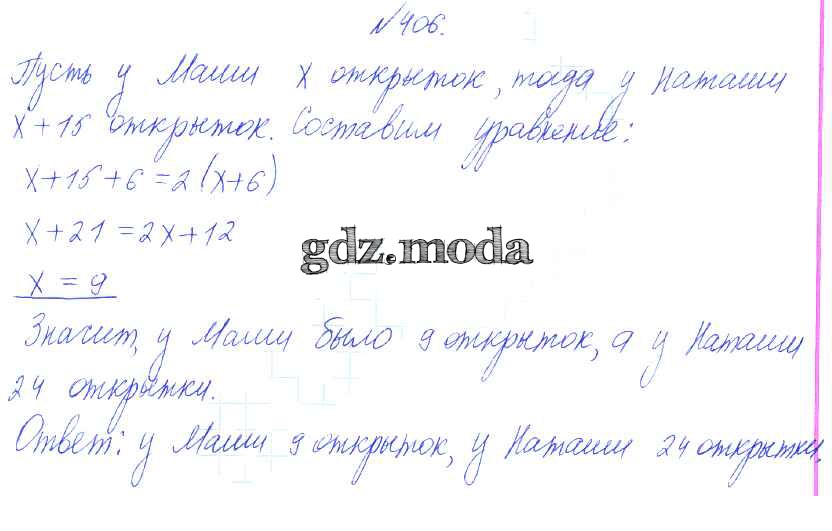 №406.
Пусть у Маши x открыток, тогда у Наташи
x+15 открыток. Составим уравнение:
x+15+6=2(x+6)
x+21=2x+12
gdz.moda
x=9
Значит, у Маши было 9 открыток, а у Наташи
24 открытки.
Ответ: у Маши 9 открыток, у Наташи 24 открытки.